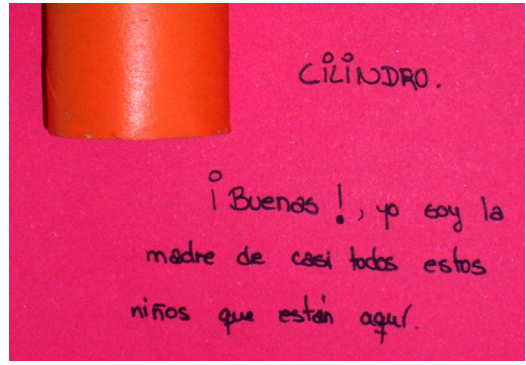 CILINDRO.
¡Buenas!, yo soy la
madre de casi todos estos
niños que están aquí.